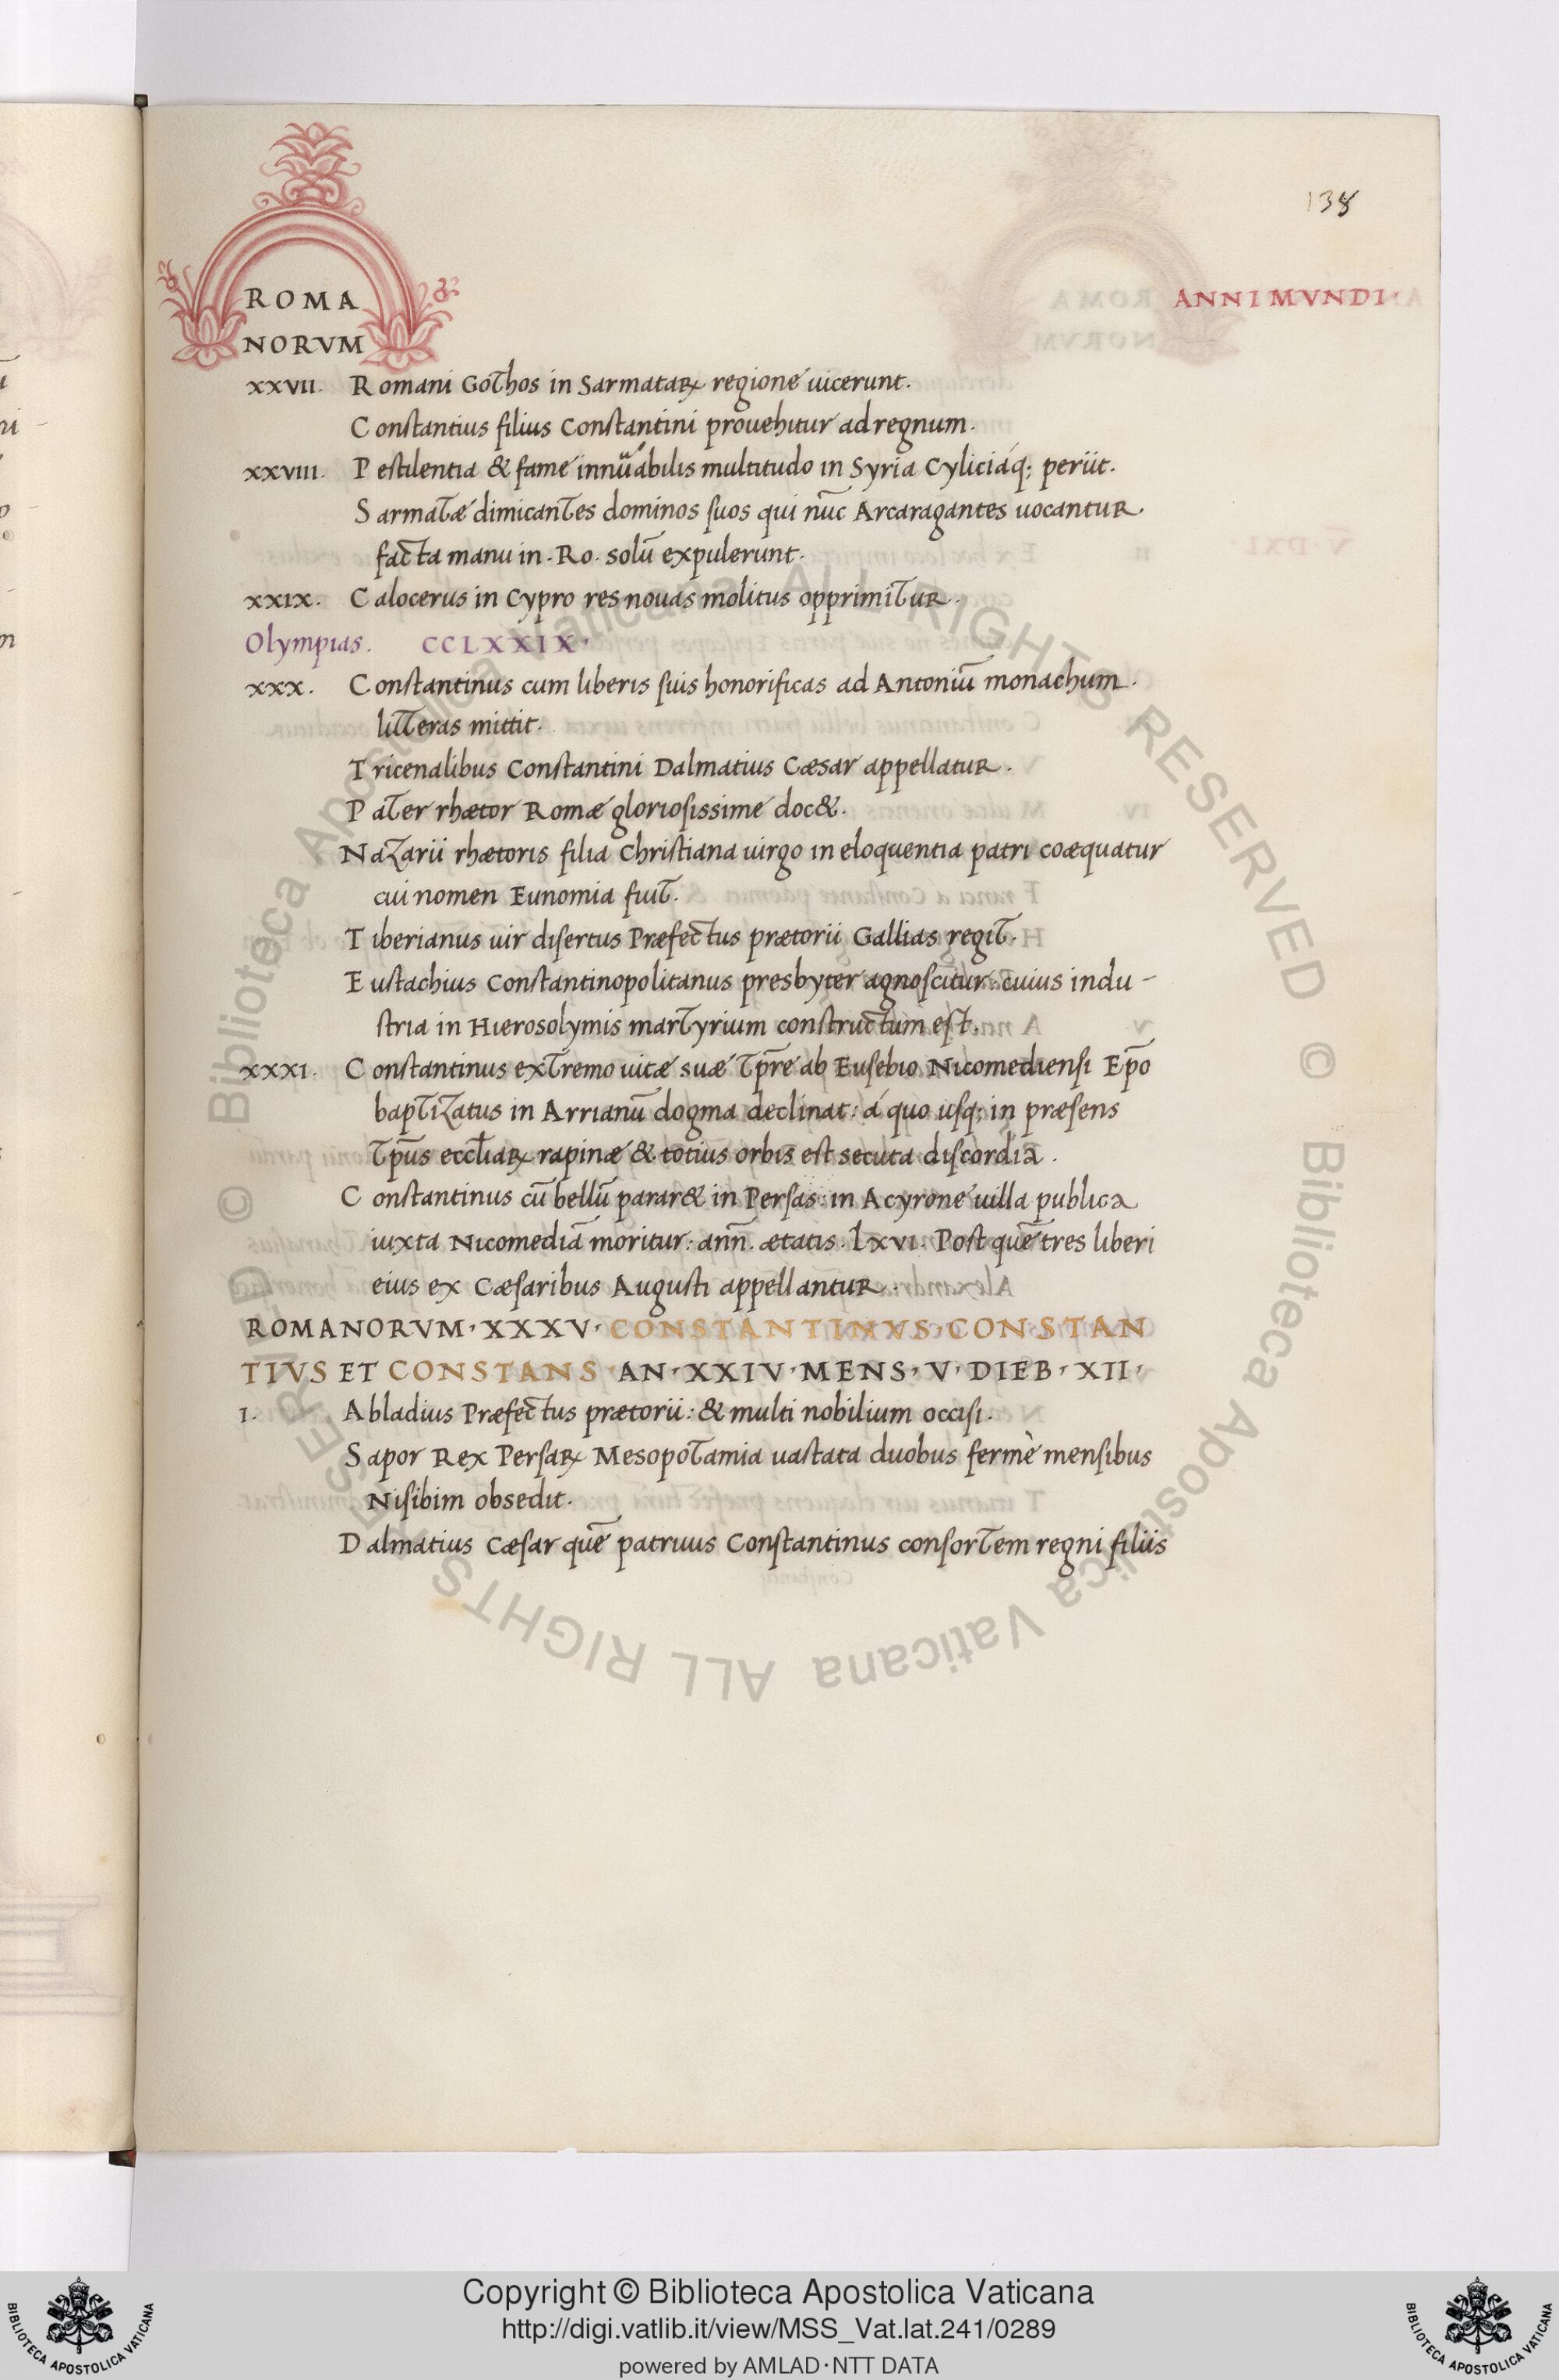 138
ROMA
NORVM
ANNI MVNDI
xxvii. Romani Gothos in Sarmataꝝ regione uicerunt.
Constantius filius Constantini prouehitur ad regnum.
xxviii. Pestilentia & fame innūabilis multitudo in Syria Cyliciáq; periit.
Sarmatæ dimicantes dominos suos qui nūc Arcaragantes uocantur.
facta manu in. Ro. solū expulerunt.
xxix. Calocerus in Cypro res nouas molitus opprimitur.
Olympias. CCLXXIX.
xxx. Constantinus cum liberis suis honorificas ad Antoniū monachum.
litteras mittit.
Tricenalibus Constantini Dalmatius Cæsar appellatur.
Pater rhætor Romæ gloriosissime doc&.
Nazarii rhætoris filia Christiana uirgo in eloquentia patri coæquatur
cui nomen Eunomia fuit.
Tiberianus uir disertus Præfectus prætorii Gallias regit.
Eustachius Constantinopolitanus presbyter agnoscitur: cuius indu-
stria in Hierosolymis martyrium constructum est.
xxxi. Constantinus extremo uitæ suæ tp̄re ab Eusebio Nicomediensi Ep̄o
baptizatus in Arrianū dogma declinat: á quo usq; in præsens
tp̄us eccl̄iaꝝ rapinæ & totius orbis est secuta discordia.
Constantinus cū bellū parar& in Persas: in Acyrone uilla publica
iuxta Nicomediā moritur: ann̄. ætatis. lxvi. Post quē tres liberi
eius ex Cæsaribus Augusti appellantur.
ROMANORVM·XXXV·CONSTANTINVS·CONSTAN
TIVS ET CONSTANS·AN·XXIV·MENS·V·DIEB·XII·
i. Abladius Præfectus prætorii: & multi nobilium occisi.
Sapor Rex Persaꝝ Mesopotamia uastata duobus fermè mensibus
Nisibim obsedit.
Dalmatius Cæsar quē patruus Constantinus consortem regni filiis
© Biblioteca Apostolica Vaticana ALL RIGHTS RESERVED © Biblioteca Apostolica Vaticana ALL RIGHTS RESERVED
Copyright © Biblioteca Apostolica Vaticana
http://digi.vatlib.it/view/MSS_Vat.lat.241/0289
powered by AMLAD·NTT DATA
BIBLIOTECA APOSTOLICA VATICANA
BIBLIOTECA APOSTOLICA VATICANA